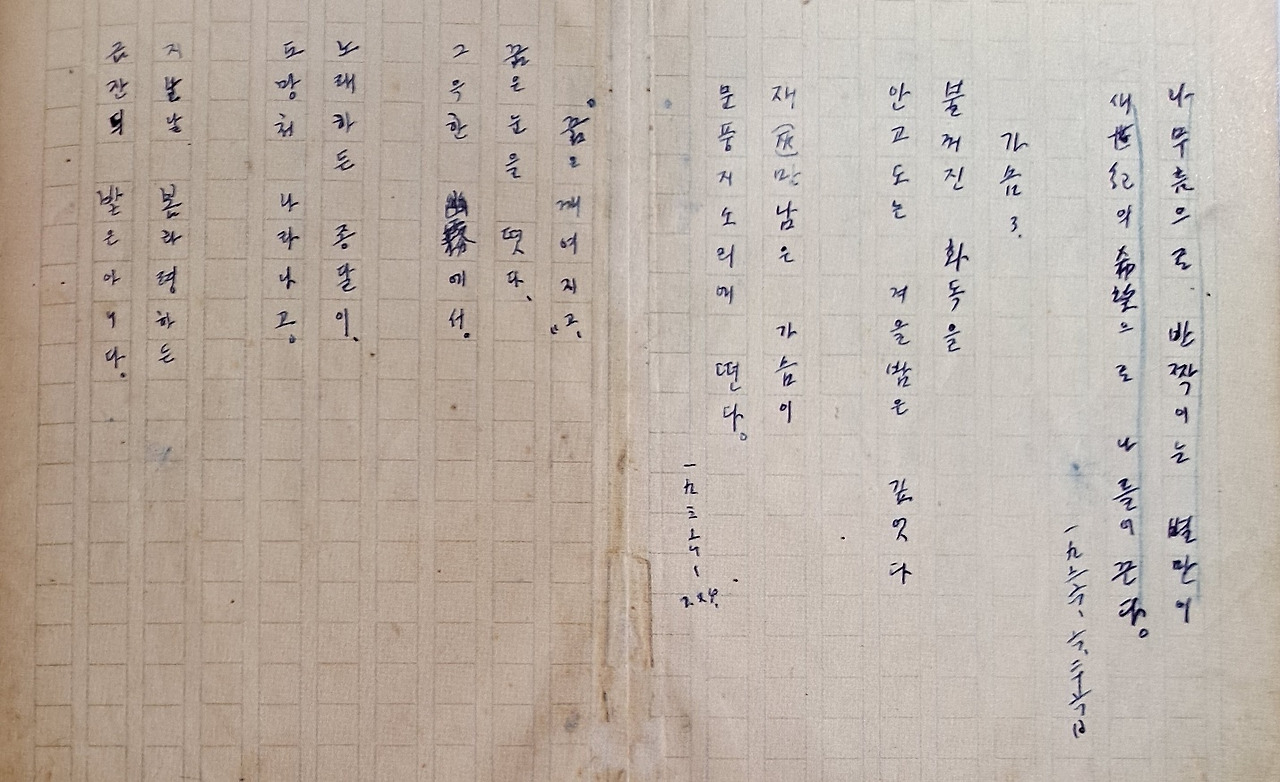 나무틈으로 반짝이는 별만이
새世紀의 希望으로 나를이끈다。
一九三六、六、二十六日
가슴 3.
불꺼진 화독을
안고도는 겨울밤은 깊엇다
재灰만남은 가슴이
문풍지소리에 떤다。
一九三六、七、24.
„꿈은 깨여지고“
꿈은 눈을 떳다、
그윽한 幽霧에서。
노래하든 종달이、
도망처 나라나고。
지난날 봄타령하든
금잔듸 밭은아니다。